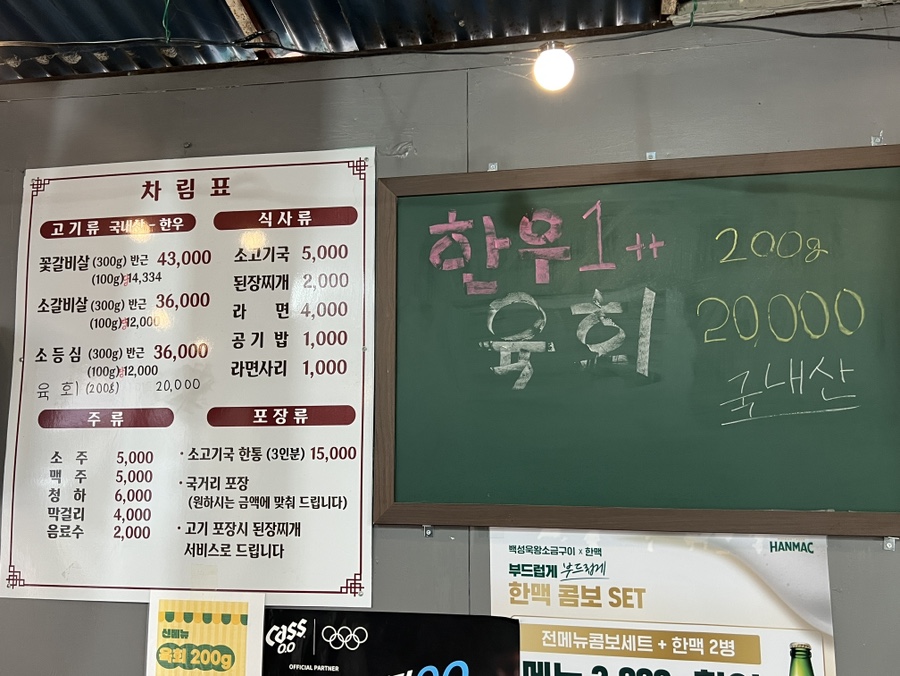 차림표
고기류 국내산 - 한우
꽃갈비살 (300g) 반근 43,000
(100g)당14,334
소갈비살 (300g) 반근 36,000
(100g)당12,000
소등심 (300g) 반근 36,000
(100g)당12,000
육회 (200g) 20,000
식사류
소고기국 5,000
된장찌개 2,000
라면 4,000
공기밥 1,000
라면사리 1,000
주류
소주 5,000
맥주 5,000
청하 6,000
막걸리 4,000
음료수 2,000
포장류
· 소고기국 한통 (3인분) 15,000
· 국거리 포장
(원하시는 금액에 맞춰 드립니다)
· 고기 포장시 된장찌개
서비스로 드립니다
한우1++ 200g
육회 20,000
국내산
신메뉴
육회 200g
Cass 0.0
OFFICIAL PARTNER
HANMAC
백성욱왕소금구이 x 한맥
부드럽게 부드럽게
한맥 콤보 SET
전메뉴콤보세트 + 한맥 2병